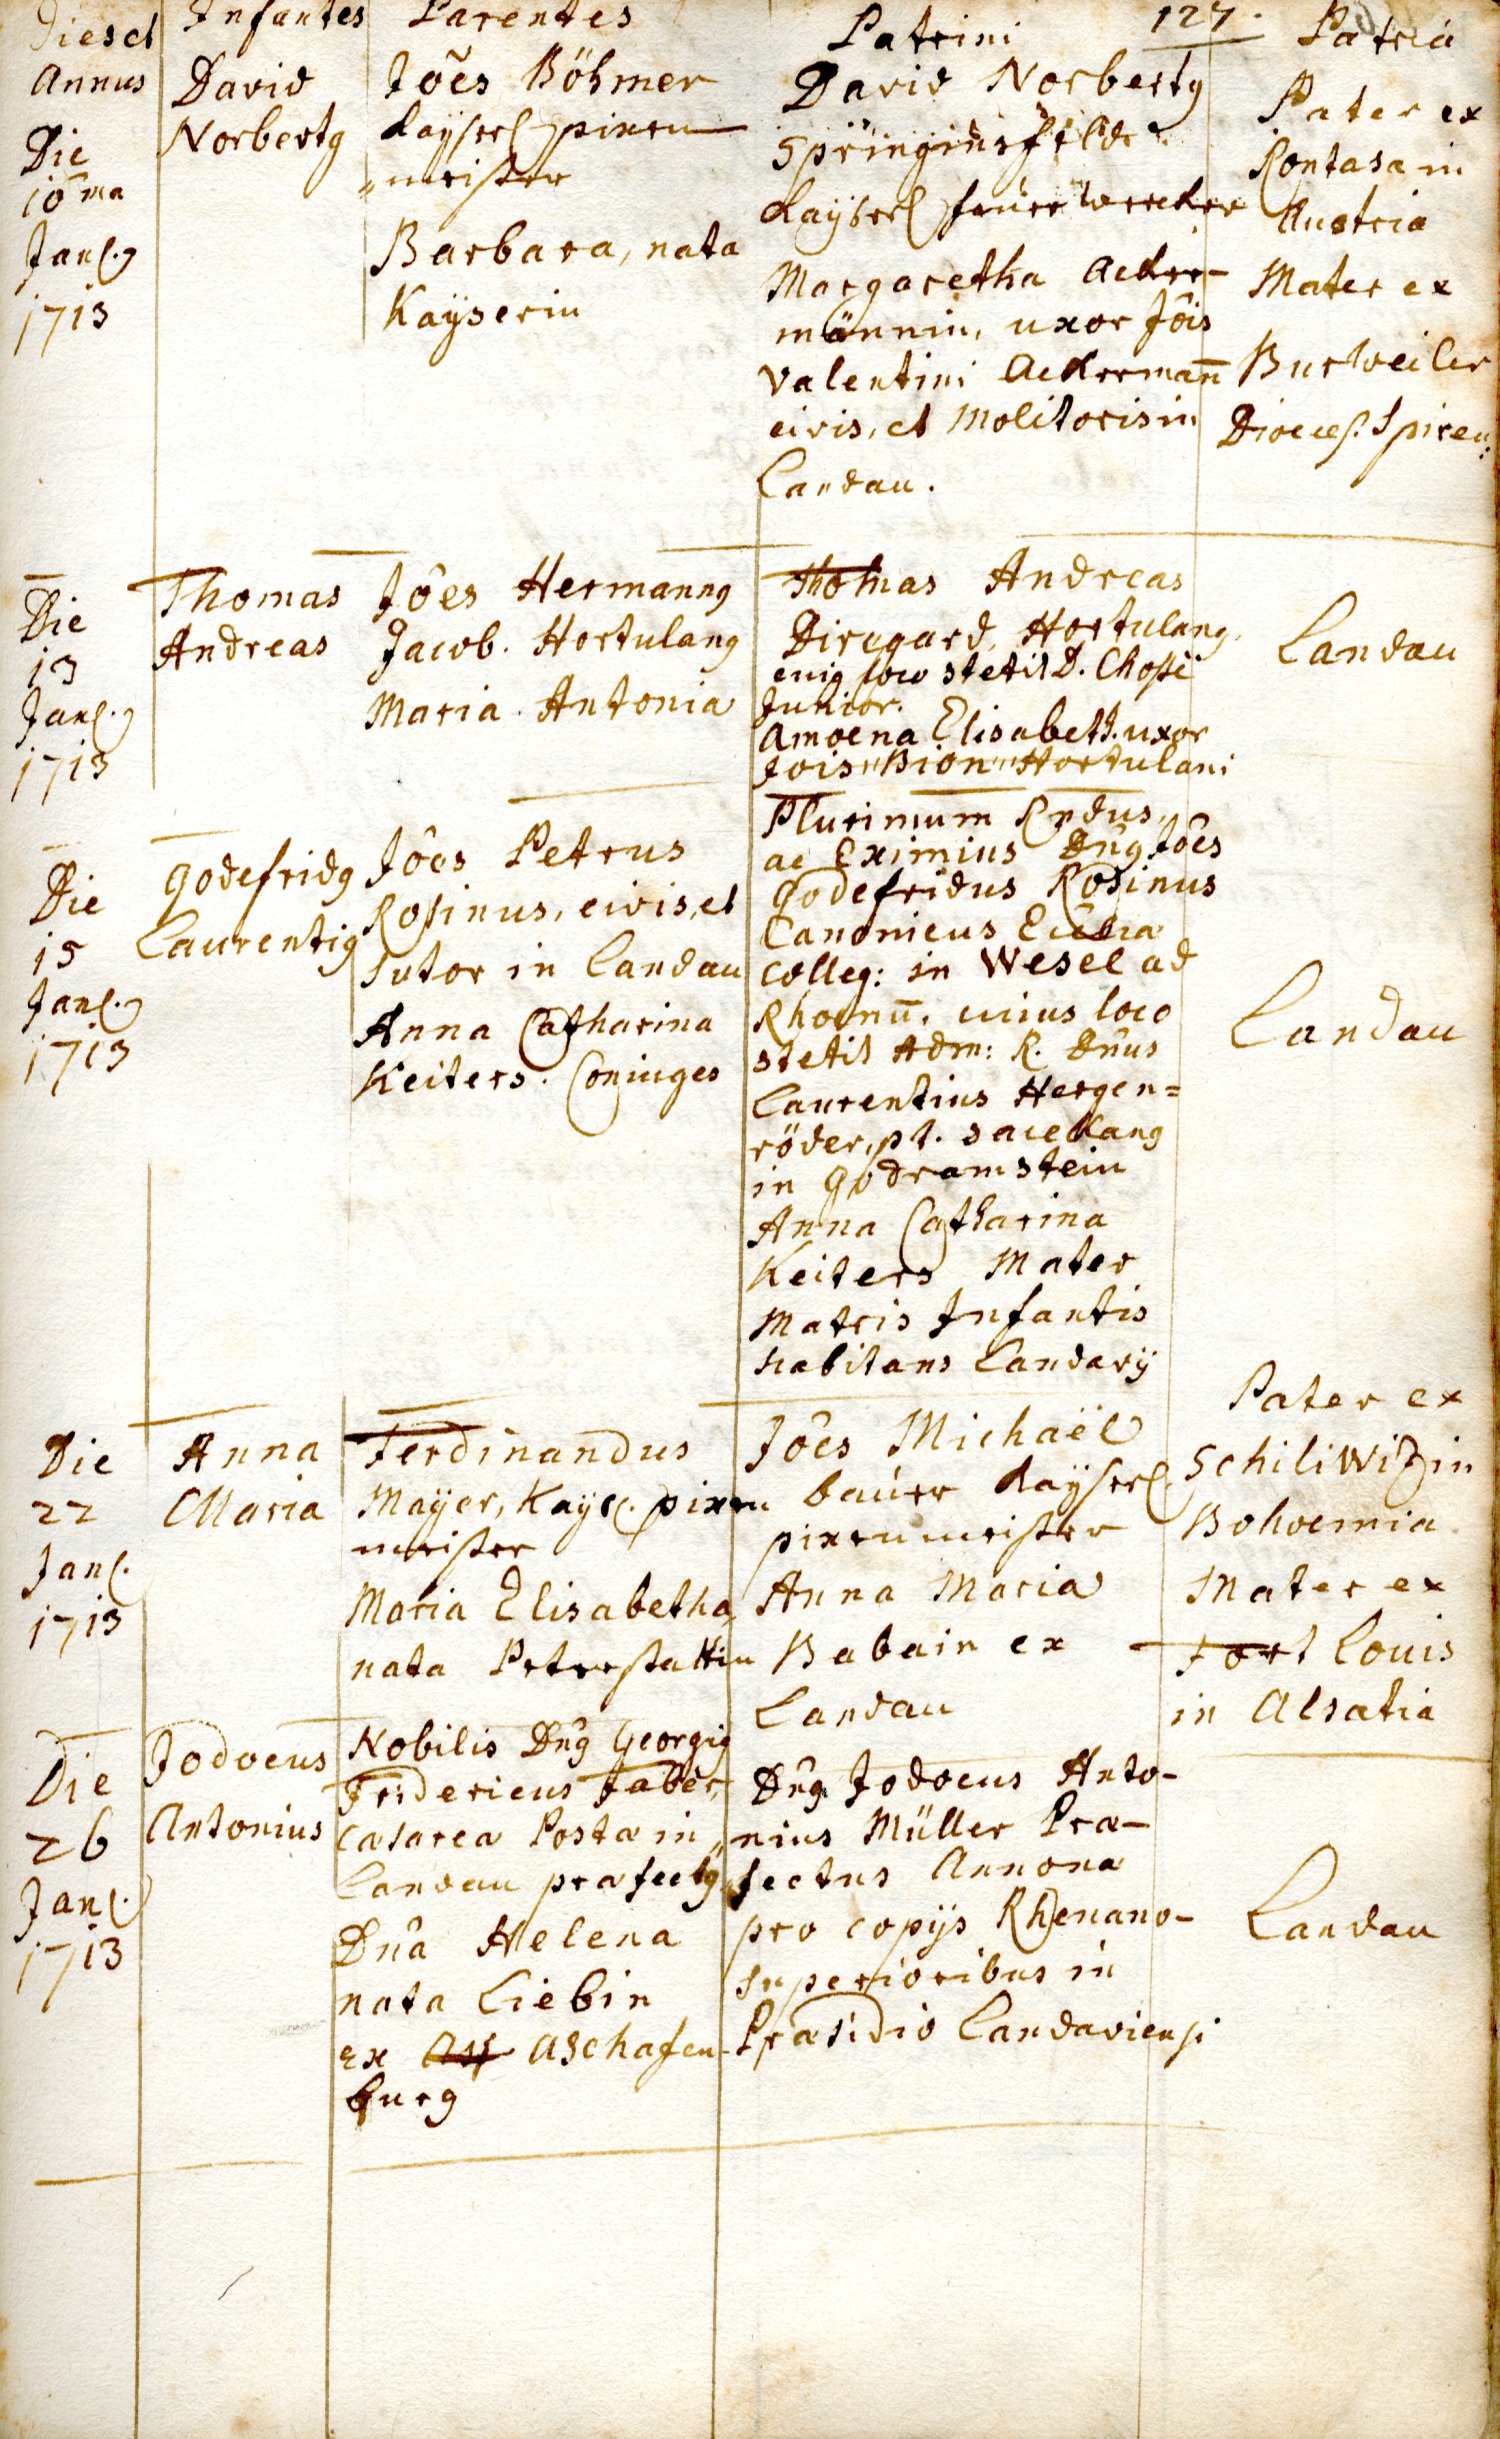 Dies et
Annus
Infantes
Parentes
Patrini
127.
Patria
Die
10 ma
Jan.
1713
David
Norbertg
Jões Böhmer
Kayserl pixen
meister
Barbara, nata
Kaÿserin
David Norbertg
Springinsfeld
Kaÿserl feuer wercker
Margaretha Acker-
männin, uxor Jôis
Valentini Ackerman̄
civis, et Molitoris in
Landau.
Pater ex
Rontasa in
Austria
Mater ex
Burweiler
Dioeces. Spiren:
Die
13
Jan.
1713
Thomas
Andreas
Jôes Hermanng
Jacob. Hortulang
Maria Antonia
Thomas Andreas
Diregard, Hortulang,
cuig loco stetit D. Chossé
Junior.
Amoena Elisabeth. uxor
Jois Bion Hortulani
Landau
Die
15
Jan.
1713
Godefridg
Laurentig
Jôes Petrus
Rosinus, civis, et
Sutor in Landau
Anna Catharina
Keiters. Coniuges
Plurimum Rndus,
ac Eximius Dn̂g Jôes
Godefridus Rosinus
Canonicus Ecclia
Colleg: in Wesel ad
Rhoenū, cuius loco
stetit Adm: R. Dn̂us
Laurentius Hergen=
röder, pt. Sacellang
in Godramstein
Anna Catharina
Keiters Mater
Matris Infantis
habitans Landavij
Landau
Die
22
Jan.
1713
Anna
Maria
Ferdinandus
Maÿer, Kaÿs. pixen
meister
Maria Elisabetha,
nata Peterstattin
Jôes Michaël
bauer Kaÿserl.
pixenmeister
Anna Maria
Babain ex
Landau
Pater ex
Schiliwiz in
Bohoemia
Mater ex
Fort Louis
in Alsatia
Die
26
Jan.
1713
Jodocus
Antonius
Nobilis Dn̂g Georgig
Fridericus Faber,
Caesarea Posta in
Landau praefectg
Dn̂a Helena
nata Liebin
ex Asf Aschafen-
burg
Dn̂g Jodocus Anto-
nius Müller Prae-
fectus Annona
pro copijs Rhenano-
Superioribus in
Praesidio Landaviensi
Landau